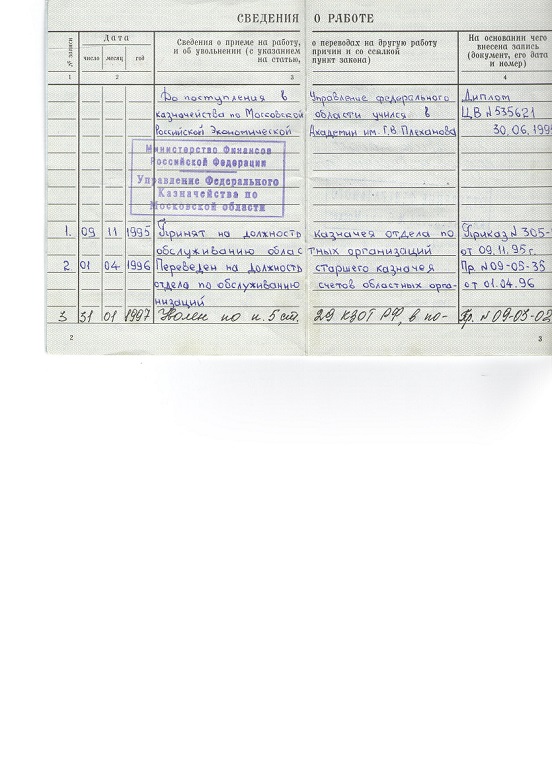 СВЕДЕНИЯ О РАБОТЕ
№ записи
Дата
число месяц год
Сведения о приеме на работу, о переводах на другую работу
и об увольнении (с указанием причин и со ссылкой
на статью, пункт закона)
На основании чего
внесена запись
(документ, его дата
и номер)
1 2 3 4
До поступления в Управление федерального Диплом
казначейства по Московской области учился в ЦВ №535621
Российской Экономической Академии им. Г.В. Плеханова 30.06.199
Министерство Финансов
Российской Федерации
Управление Федерального
Казначейства по
Московской области
1. 09 11 1995 Принят на должность казначея отдела по Приказ №305-
обслуживанию областных организаций от 09.11.95г.
2 01 04 1996 Переведен на должность старшего казначея Пр. №09-05-35
отдела по обслуживанию счетов областных орга- от 01.04.96
низаций
3 31 01 1997 Уволен по п.5 ст. 29 КЗОТ РФ, в по- Пр. №09-03-02
2 3